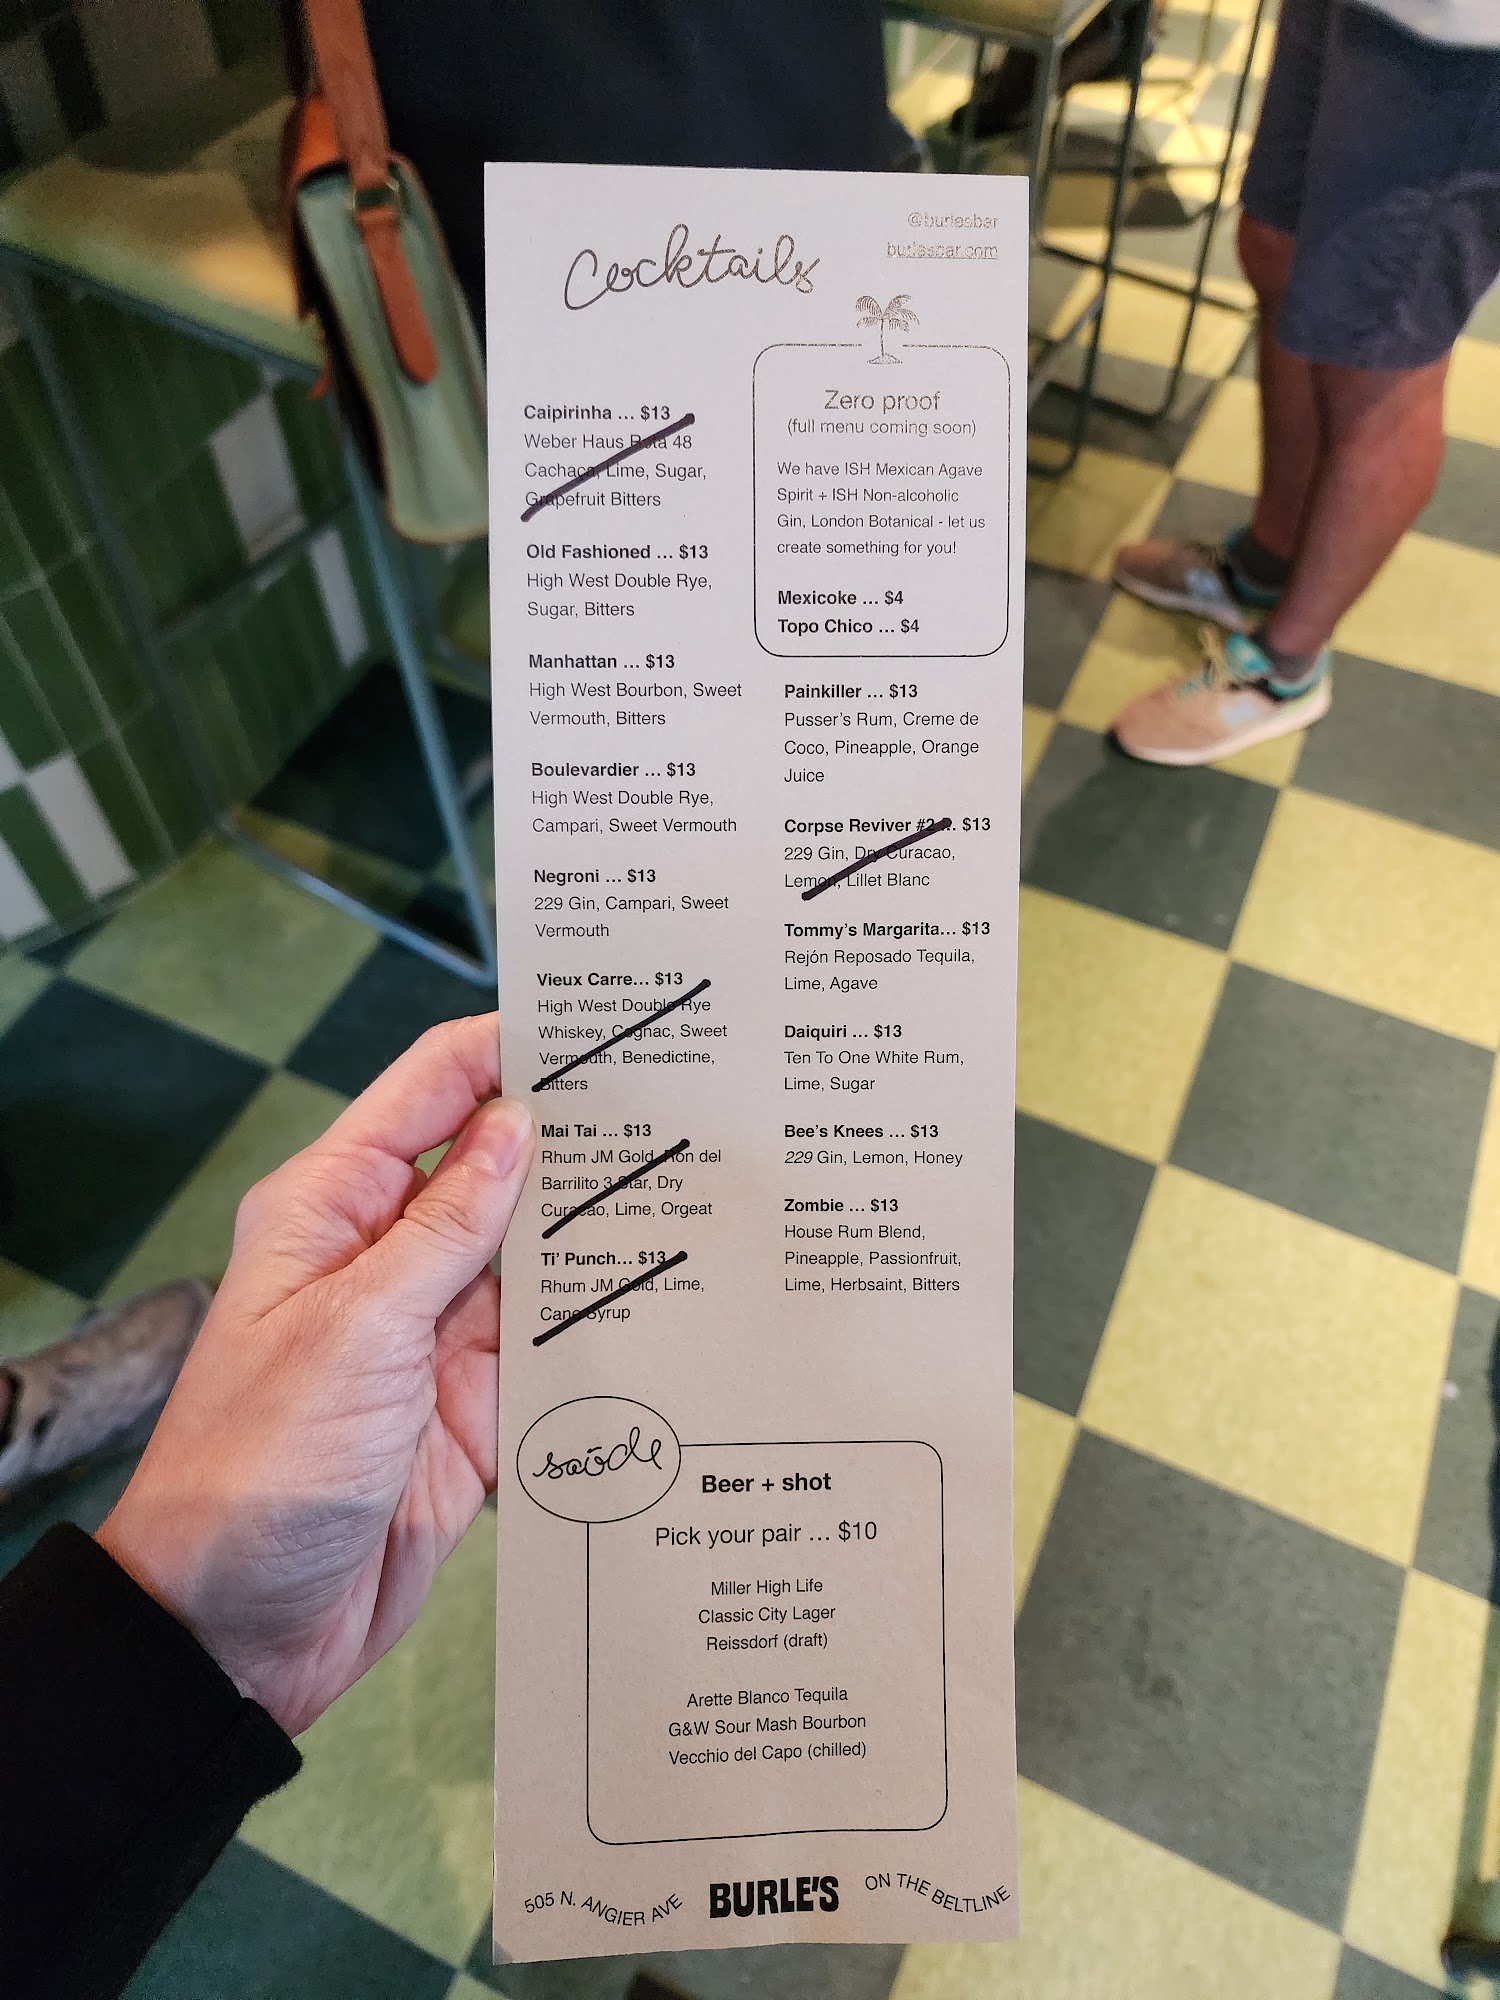 Cocktails
@burlesbar
burlesbar.com
Caipirinha ... $13
Weber Haus Rota 48
Cachaça, Lime, Sugar,
Grapefruit Bitters
Old Fashioned ... $13
High West Double Rye,
Sugar, Bitters
Manhattan ... $13
High West Bourbon, Sweet
Vermouth, Bitters
Boulevardier ... $13
High West Double Rye,
Campari, Sweet Vermouth
Negroni ... $13
229 Gin, Campari, Sweet
Vermouth
Vieux Carre... $13
High West Double Rye
Whiskey, Cognac, Sweet
Vermouth, Benedictine,
Bitters
Mai Tai ... $13
Rhum JM Gold, Ron del
Barrilito 3 Star, Dry
Curacao, Lime, Orgeat
Ti' Punch... $13
Rhum JM Gold, Lime,
Cane Syrup
Zero proof
(full menu coming soon)
We have ISH Mexican Agave
Spirit + ISH Non-alcoholic
Gin, London Botanical - let us
create something for you!
Mexicoke ... $4
Topo Chico ... $4
Painkiller ... $13
Pusser's Rum, Creme de
Coco, Pineapple, Orange
Juice
Corpse Reviver #2 ... $13
229 Gin, Dry Curacao,
Lemon, Lillet Blanc
Tommy's Margarita... $13
Rejón Reposado Tequila,
Lime, Agave
Daiquiri ... $13
Ten To One White Rum,
Lime, Sugar
Bee's Knees ... $13
229 Gin, Lemon, Honey
Zombie ... $13
House Rum Blend,
Pineapple, Passionfruit,
Lime, Herbsaint, Bitters
saúde
Beer + shot
Pick your pair ... $10
Miller High Life
Classic City Lager
Reissdorf (draft)
Arette Blanco Tequila
G&W Sour Mash Bourbon
Vecchio del Capo (chilled)
505 N. ANGIER AVE BURLE'S ON THE BELTLINE